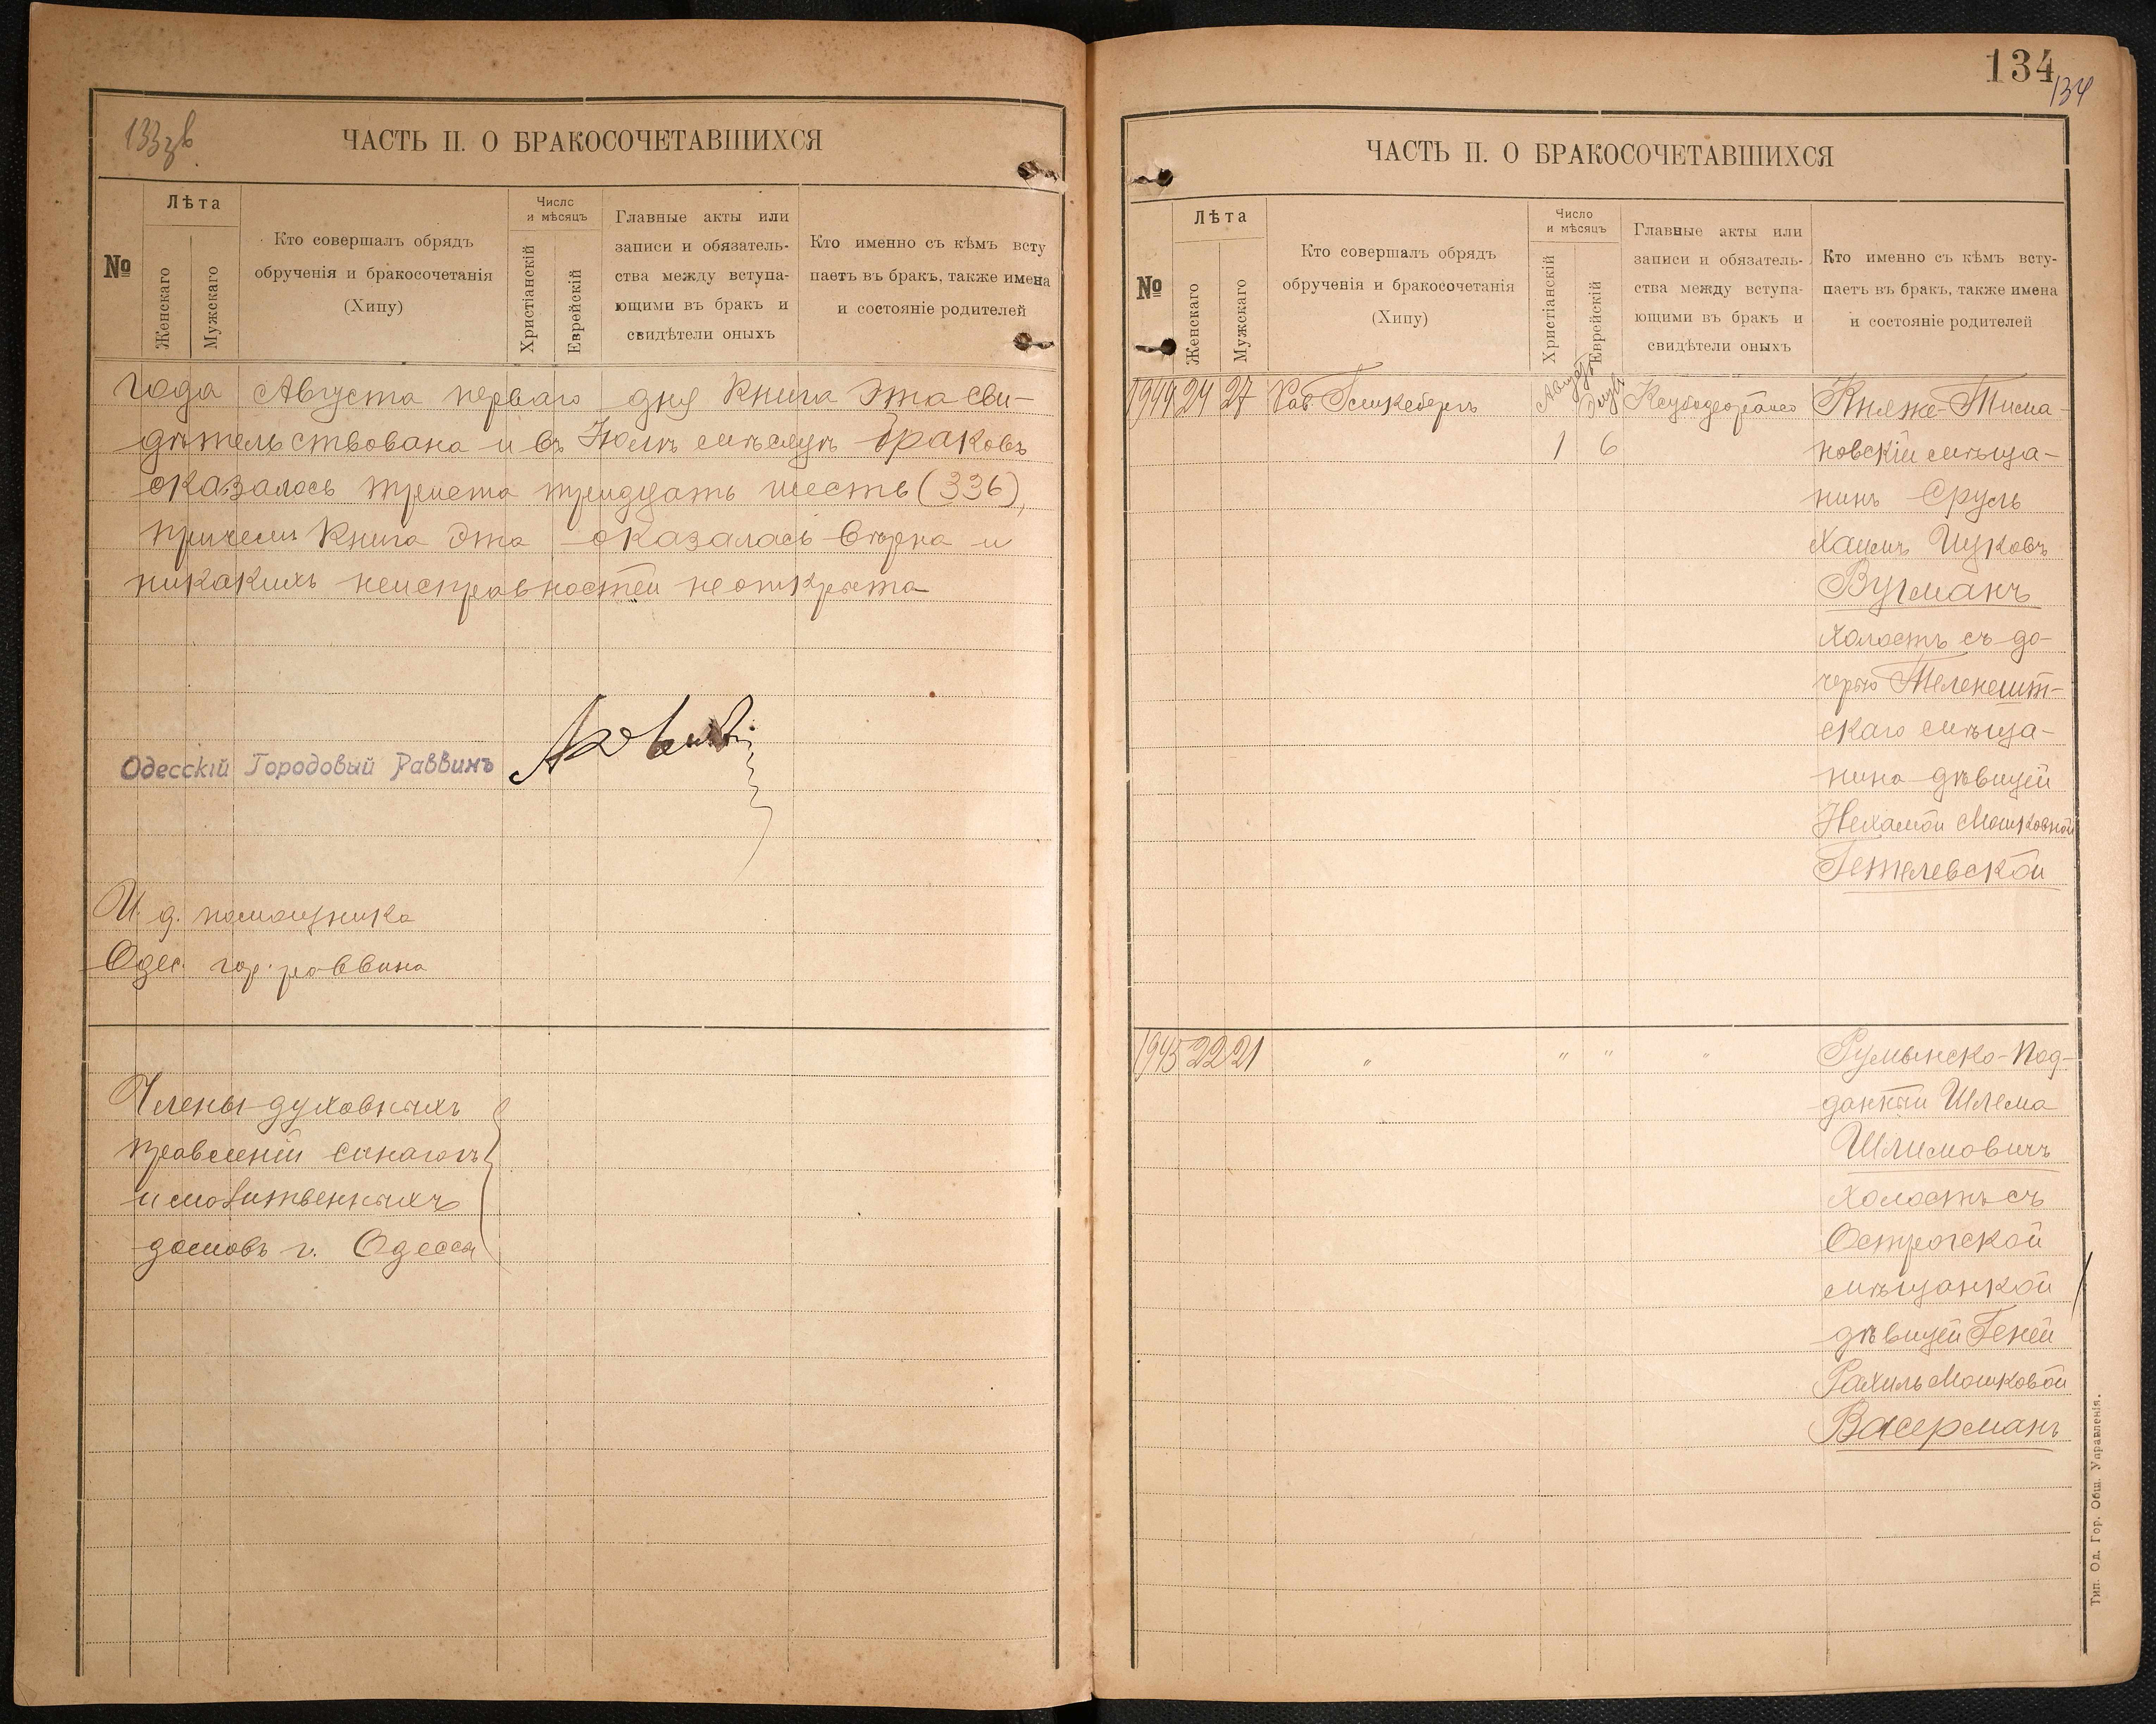 133 зв.
ЧАСТЬ II. О БРАКОСОЧЕТАВШИХСЯ
№
Лѣта
Женскаго
Мужскаго
Кто совершалъ обрядъ
обрученія и бракосочетанія
(Хипу)
Число
и мѣсяцъ
Христіанскій
Еврейскій
Главные акты или
записи и обязатель-
ства между вступа-
ющими въ бракъ и
свидѣтели оныхъ
Кто именно съ кѣмъ всту
паетъ въ бракъ, также имена
и состояніе родителей
года Августа перваго дня Книга эта сви-
дѣтельствована и въ Іюлѣ мѣсяцѣ браковъ
оказалось триста тридцать шесть (336),
причемъ Книга эта оказалась вѣрна и
никакихъ неисправностей не открыто
Одесскій Городовый Раввинъ
И. д. помощника
Одес. гор. раввина
Члены духовныхъ
правленій синагогъ
и молитвенныхъ
домовъ г. Одессы
134
134
ЧАСТЬ II. О БРАКОСОЧЕТАВШИХСЯ
№
Лѣта
Женскаго
Мужскаго
Кто совершалъ обрядъ
обрученія и бракосочетанія
(Хипу)
Число
и мѣсяцъ
Христіанскій
Еврейскій
Главные акты или
записи и обязатель-
ства между вступа-
ющими въ бракъ и
свидѣтели оныхъ
Кто именно съ кѣмъ всту-
паетъ въ бракъ, также имена
и состояніе родителей
1944 24 27 Рав. Августъ 1 Элулъ 6
Княже-Тисма-
новскій мѣща-
нинъ Сруль
Хаимъ Ицковъ
Вугманъ
холостъ съ до-
черью Теленешт-
скаго мѣща-
нина дѣвицей
Нехамой Мошковной
Гетелевской
1945 22 21 " " " "
Румынско-Под-
данный Шлема
Шлимовичъ
холостъ съ
Острогской
мѣщанкой
дѣвицей Геней
Рахиль Мошковой
Васерманъ
Тип. Од. Гор. Общ. Управленія.